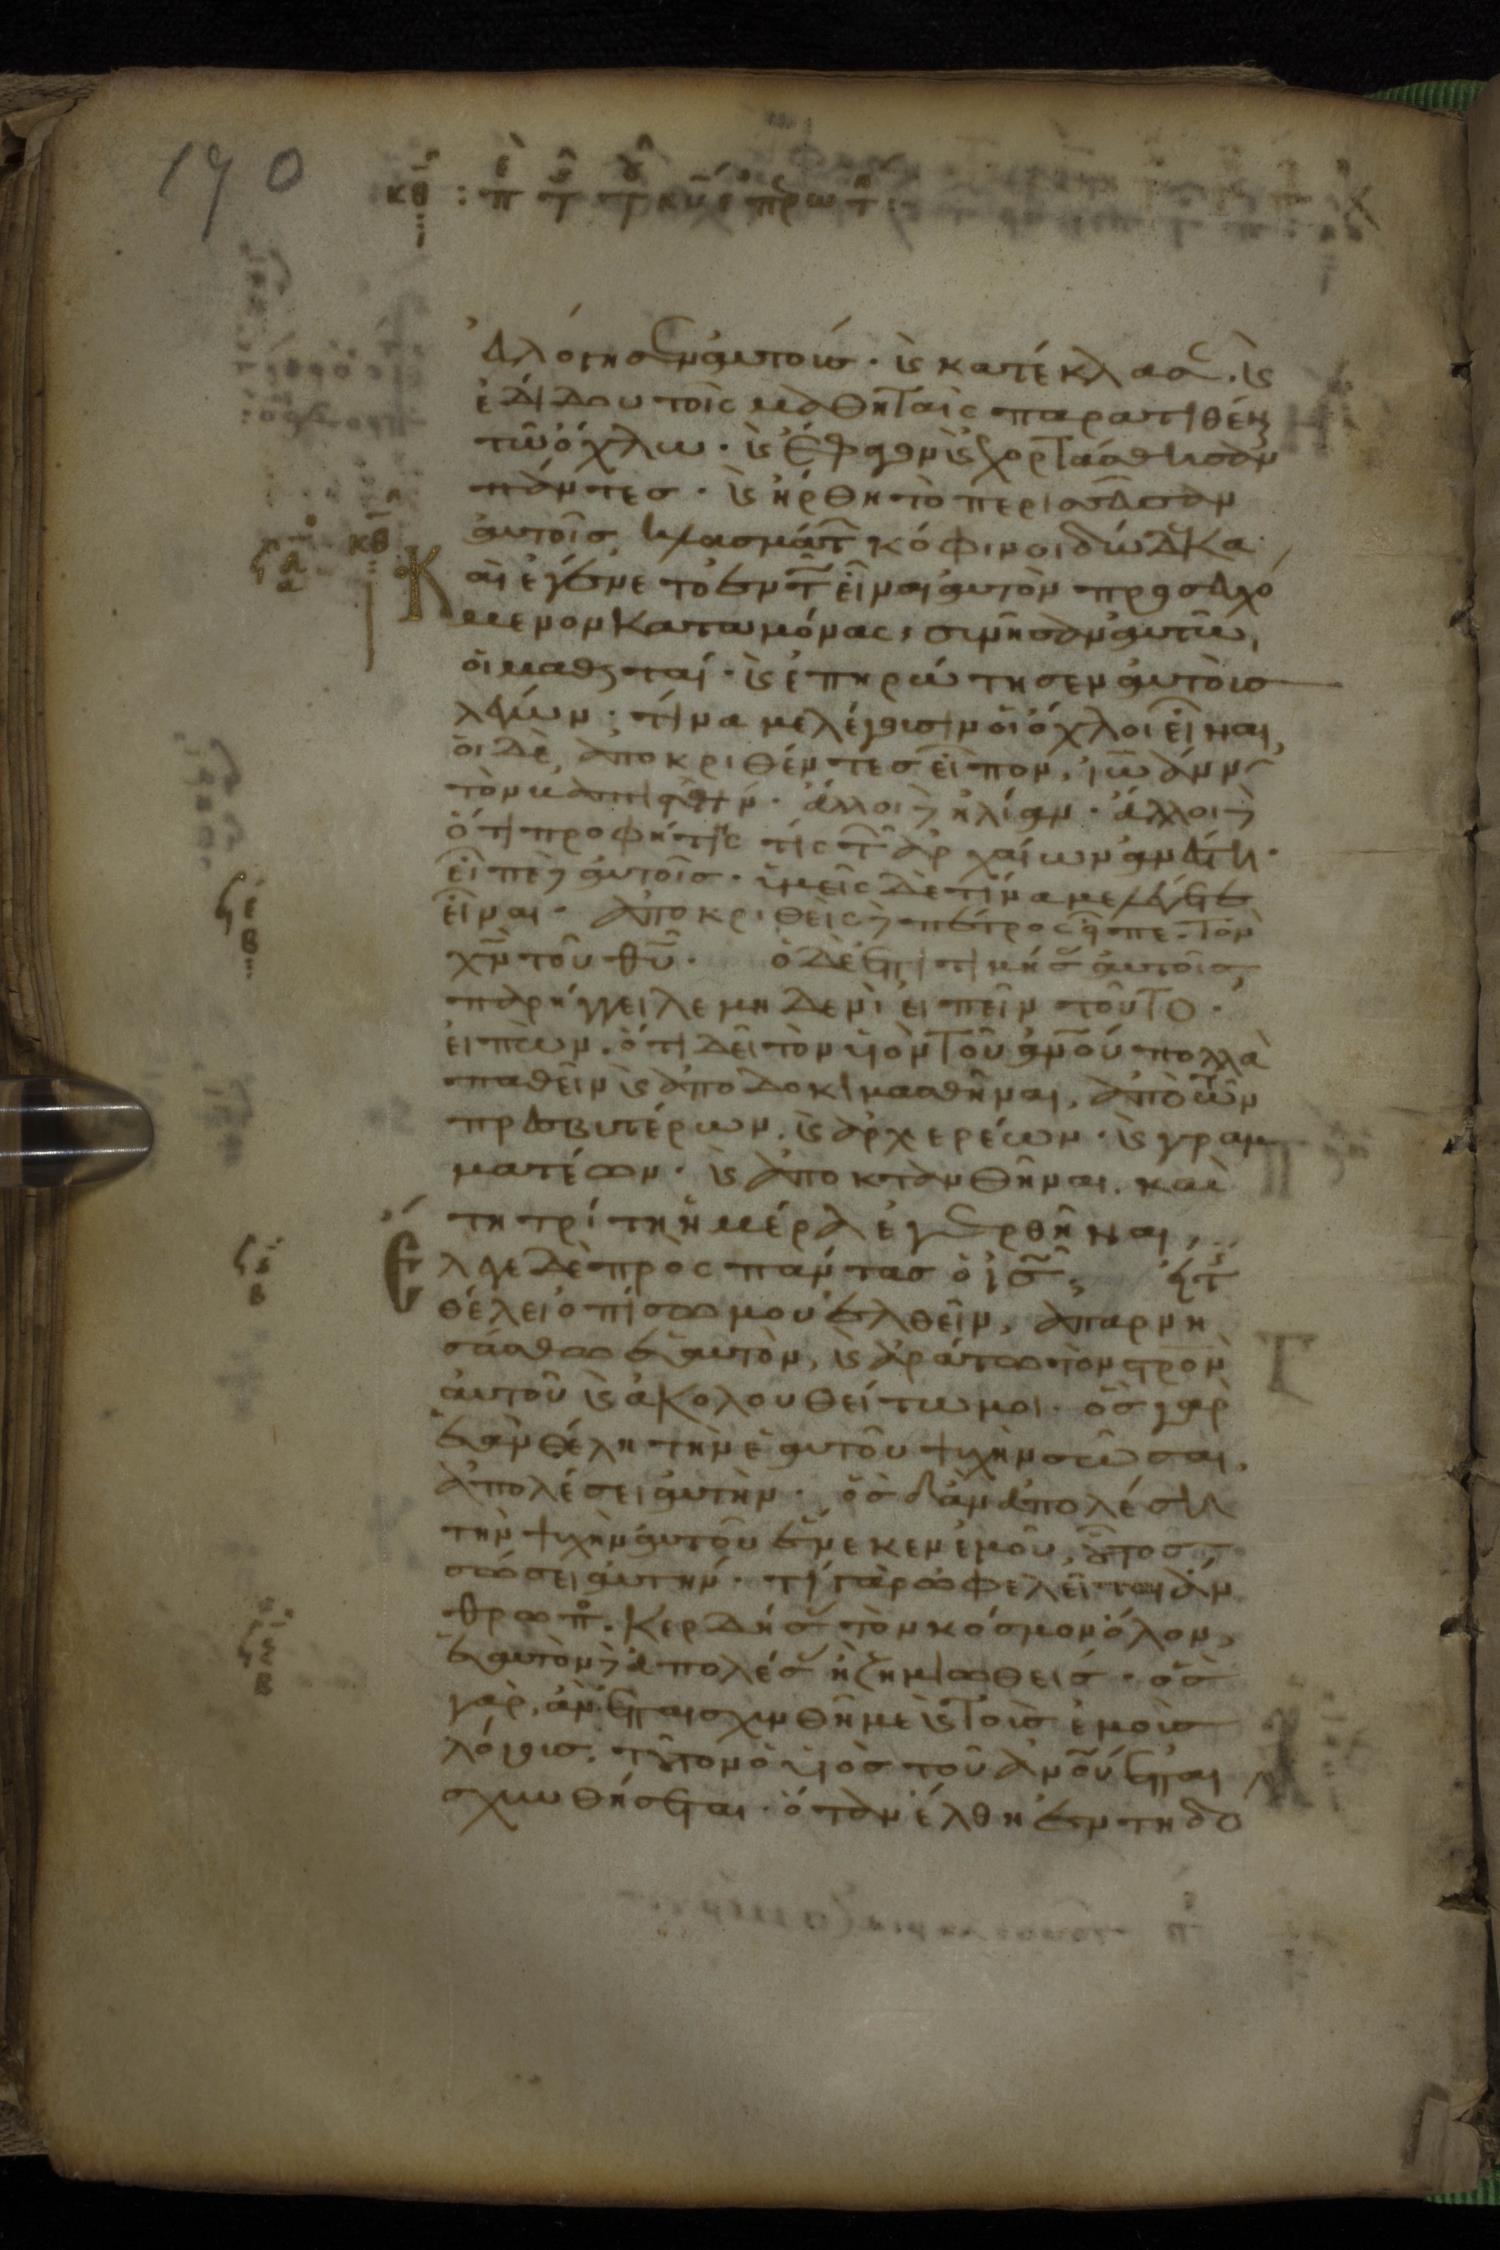 190
κθ : π τ τ κυ ερωτ
ἐυλόγησεν αυτοὺσ · κ κατέκλασε · κ
ἐδίδου τοῖς μαθηταῖς παρατιθέναι
τῶ ὄχλω · κ ἔφαγον κ ἐχορτάσθησαν
πάντεσ · κ ἤρθη τὸ περισσεῦσαν
αυτοῖσ κλασμάτ κόφινοι δώδεκα
Καὶ ἐγένετο ἐν τ εἶναι αυτὸν προσευχό
μενον καταμόνας, συνῆσαν αυτῶ
οἱ μαθηταί · κ ἐπηρώτησεν αυτοὺσ
λέγων · τίνα με λέγουσιν οἱ ὄχλοι εἶναι,
ὁι δὲ ἀποκριθέντεσ εἶπον, ἰωάννην
τὸν βαπτιστήν · ἄλλοι δε ἠλίαν · ἄλλοι δε
ὅτι προφήτης τίς τ ἀρχαίων ἀνέστη ·
εἶπε δε αυτοῖσ · ὑμεῖς δὲ τίνα με λέγετε
εἶναι · ἀποκριθεὶς δε πέτρος εἶπε · τὸν
χν τοῦ θυ · ὁ δὲ ἐπιτιμήσας αυτοῖσ
παρήγγειλε μηδενὶ ἐιπεῖν τοῦτο ·
ἐιπὼν · ὅτι δεῖ τὸν υἱὸν τοῦ ανου πολλὰ
παθεῖν κ ἀποδοκιμασθῆναι, ἀπὸ τῶν
πρεσβυτέρων · κ ἀρχερέων · κ γραμ
ματέων · κ ἀποκτανθῆναι · καὶ
τη τρίτη ἡμέρα ἐγερθῆναι,
Ἔλεγε δὲ πρὸς πάντασ ὁ ισ, ἔιτ
θέλει ὀπίσω μου ἐλθεῖν, ἀπαρνη
σάσθω ἑαυτὸν, κ ἀράτω τὸν στρον
αυτοῦ κ ἀκολουθείτω μοι · ὃσ γὰρ
ἐὰν θέλη τὴν ἑαυτοῦ ψυχὴν σῶσαι,
ἀπολέσει αυτὴν · ὃσ δ ἀν ἀπολέση
τὴν ψυχὴν αυτοῦ ἕνεκεν ἐμοῦ, οὗτοσ
σώσει αυτην · τί γὰρ ὠφελεῖται ἄν
θρωπο · κερδήσας τὸν κόσμον ὅλον,
ἑαυτὸν δε ἀπολέσας ἢ ζημιωθεισ · ὃσ
γὰρ, ἀν ἐπαισχυνθῆ με κ τοὺσ ἐμοὺσ
λόγουσ · τοῦτον ὁ υἱὸσ τοῦ ἀνου ἐπαι
σχυνθήσεται · ὅταν ἔλθη ἐν τη δό